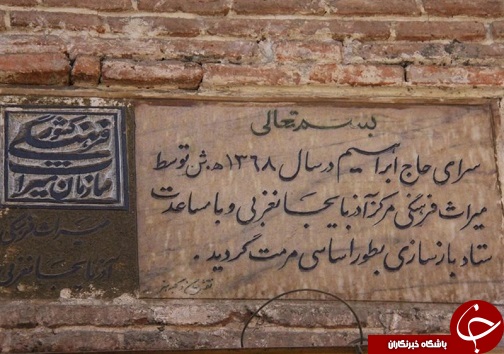 بسمه تعالی
سرای حاج ابراهیم در سال ۱۳۶۸ ه.ش توسط
میراث فرهنگی مرکز آذربایجانغربی و با مساعدت
ستاد بازسازی بطور اساسی مرمت گردید.
سازمان میراث
فرهنگی کشور
میراث فرهنگی
آذربایجانغربی
باشگاه خبرنگاران